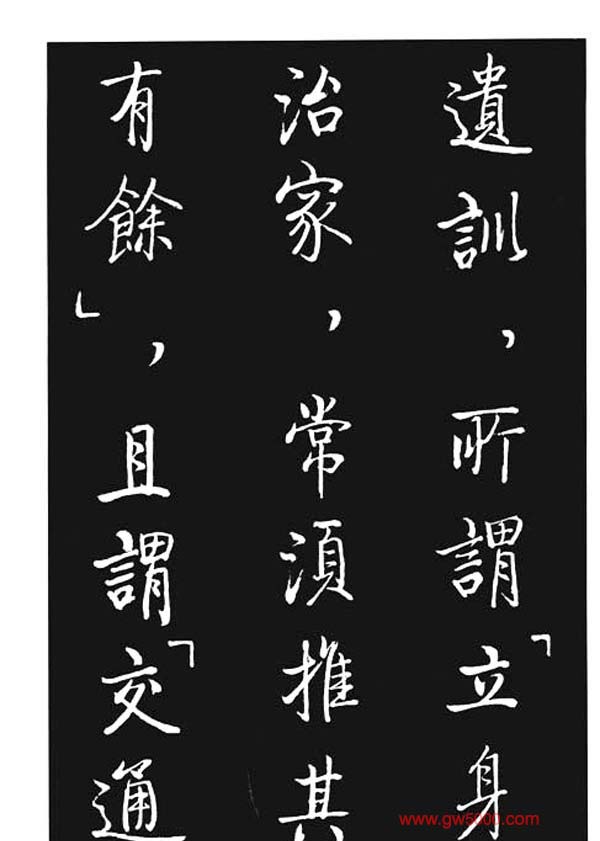 遺訓，所謂「立身
治家，常須推其
有餘」，且謂「交通
www.gw5000.com